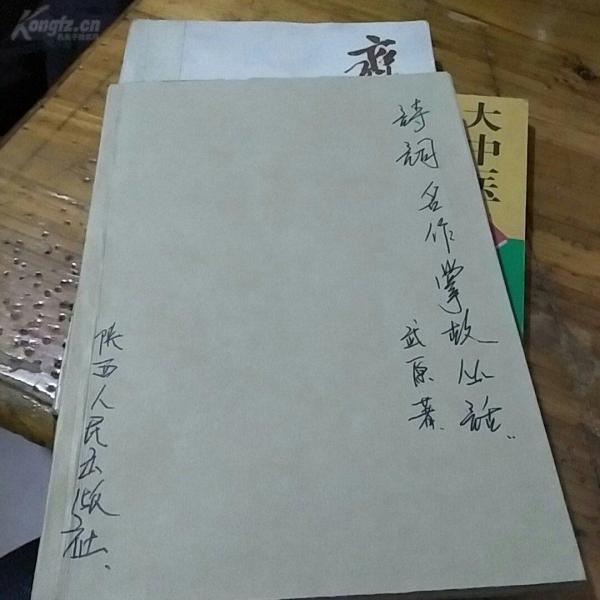 Kongfz.cn
詩詞名作掌故丛話
武原著
陕西人民出版社
大中医